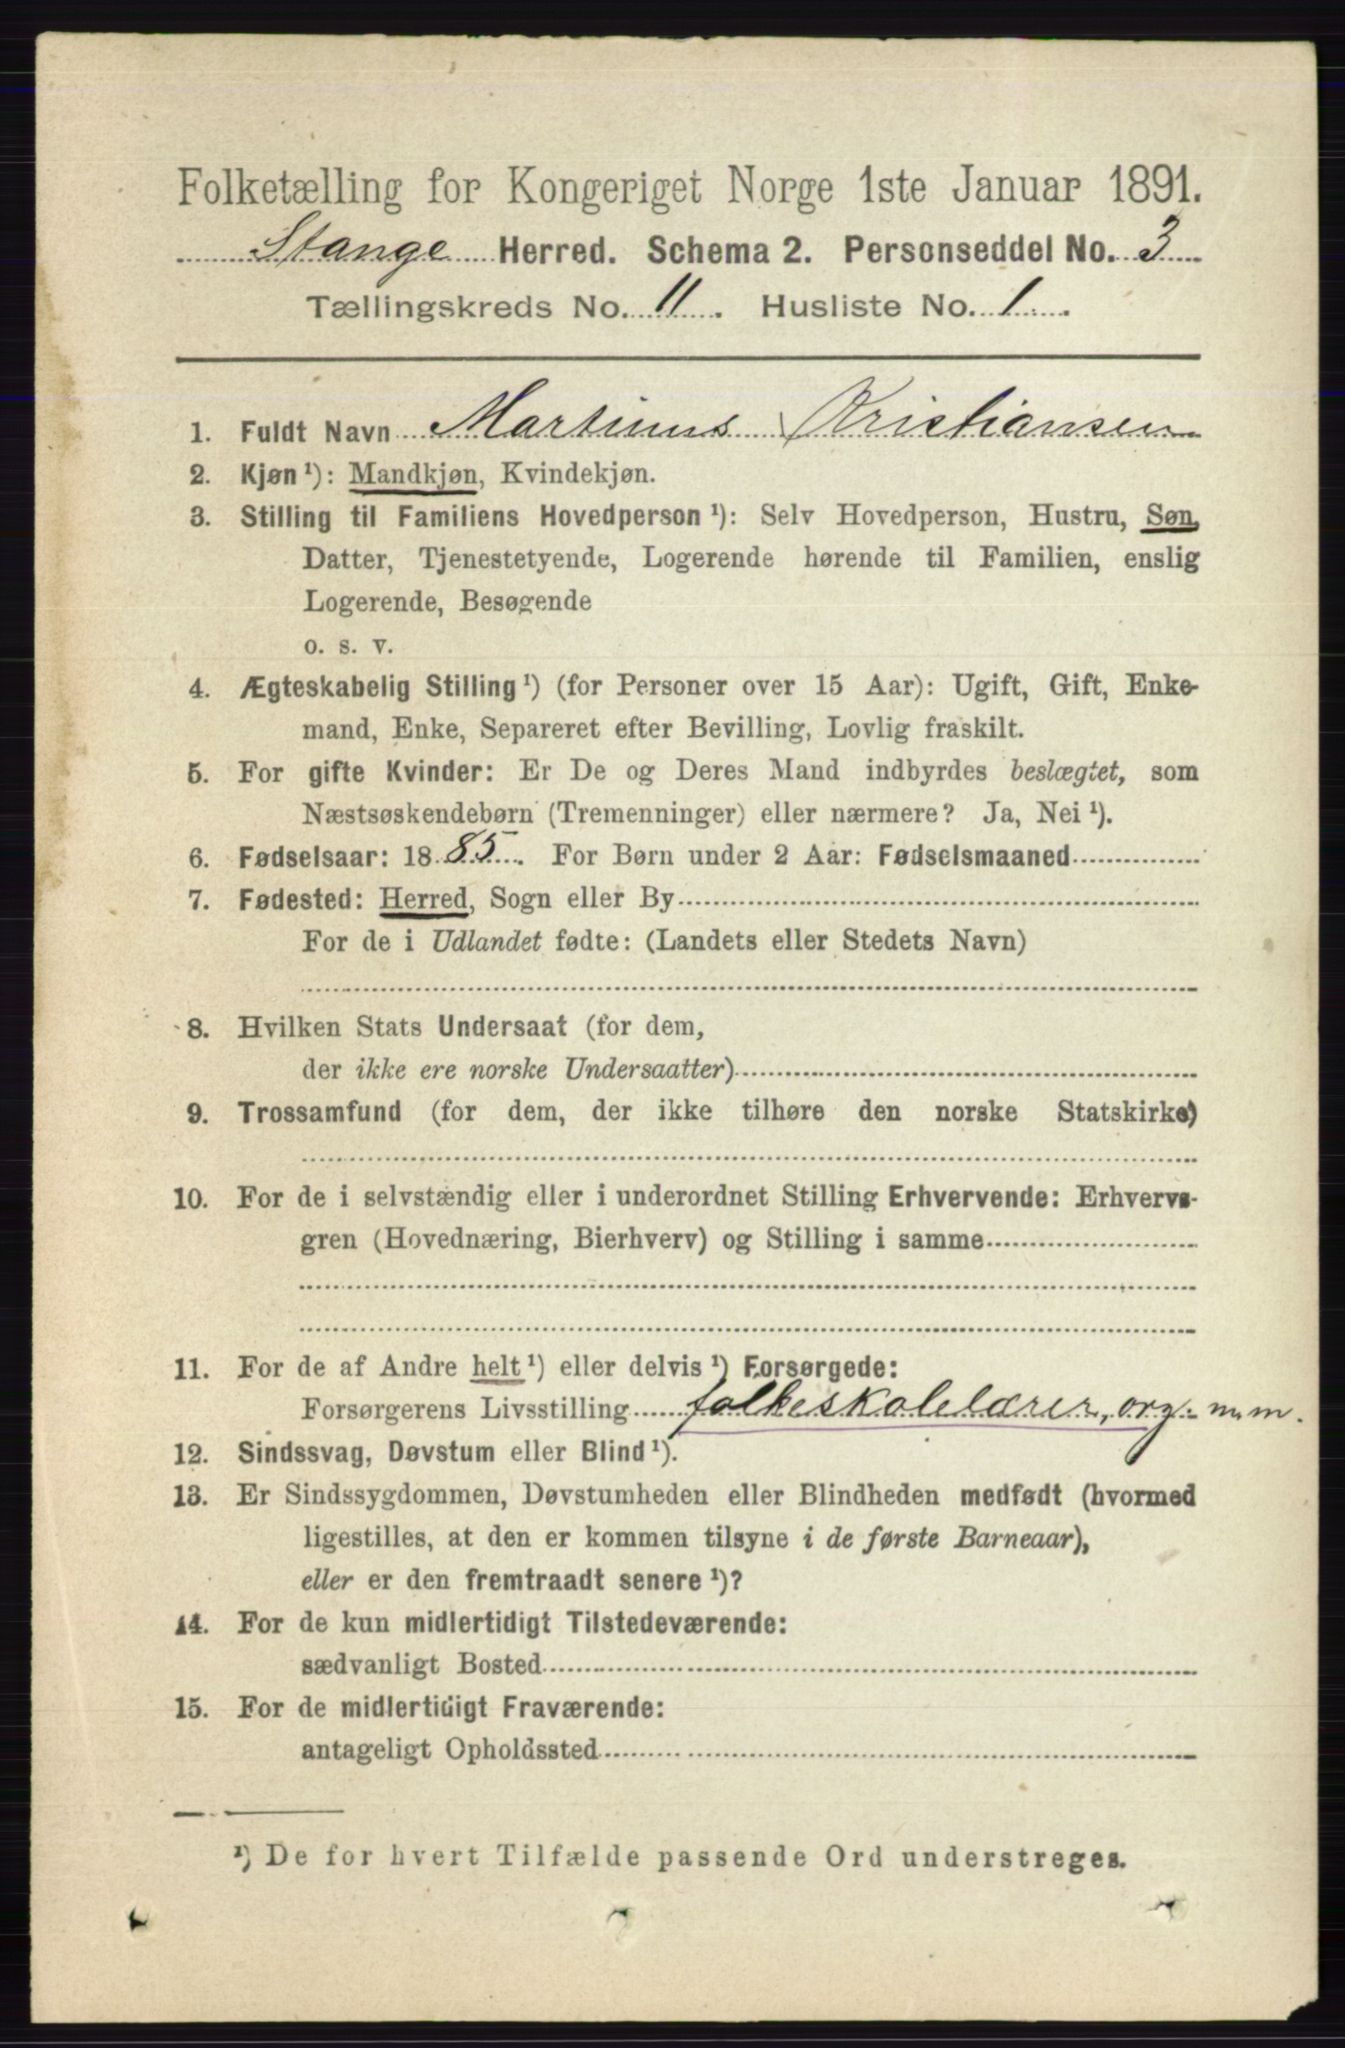 Folketælling for Kongeriget Norge 1ste Januar 1891.
Stange Herred. Schema 2. Personseddel No. 3
Tællingskreds No. 11. Husliste No. 1.
1. Fuldt Navn Martinus Kristiansen
2. Kjøn ¹): Mandkjøn, Kvindekjøn.
3. Stilling til Familiens Hovedperson ¹): Selv Hovedperson, Hustru, Søn,
Datter, Tjenestetyende, Logerende hørende til Familien, enslig
Logerende, Besøgende
o. s. v.
4. Ægteskabelig Stilling ¹) (for Personer over 15 Aar): Ugift, Gift, Enke-
mand, Enke, Separeret efter Bevilling, Lovlig fraskilt.
5. For gifte Kvinder: Er De og Deres Mand indbyrdes beslægtet, som
Næstsøskendebørn (Tremenninger) eller nærmere? Ja, Nei ¹).
6. Fødselsaar: 1885. For Børn under 2 Aar: Fødselsmaaned
7. Fødested: Herred, Sogn eller By
For de i Udlandet fødte: (Landets eller Stedets Navn)
8. Hvilken Stats Undersaat (for dem,
der ikke ere norske Undersaatter)
9. Trossamfund (for dem, der ikke tilhøre den norske Statskirke)
10. For de i selvstændig eller i underordnet Stilling Erhvervende: Erhvervs-
gren (Hovednæring, Bierhverv) og Stilling i samme
11. For de af Andre helt ¹) eller delvis ¹) Forsørgede:
Forsørgerens Livsstilling folkeskolelærer, org. m. m.
12. Sindssvag, Døvstum eller Blind ¹).
13. Er Sindssygdommen, Døvstumheden eller Blindheden medfødt (hvormed
ligestilles, at den er kommen tilsyne i de første Barneaar),
eller er den fremtraadt senere ¹)?
14. For de kun midlertidigt Tilstedeværende:
sædvanligt Bosted
15. For de midlertidigt Fraværende:
antageligt Opholdssted
¹) De for hvert Tilfælde passende Ord understreges.